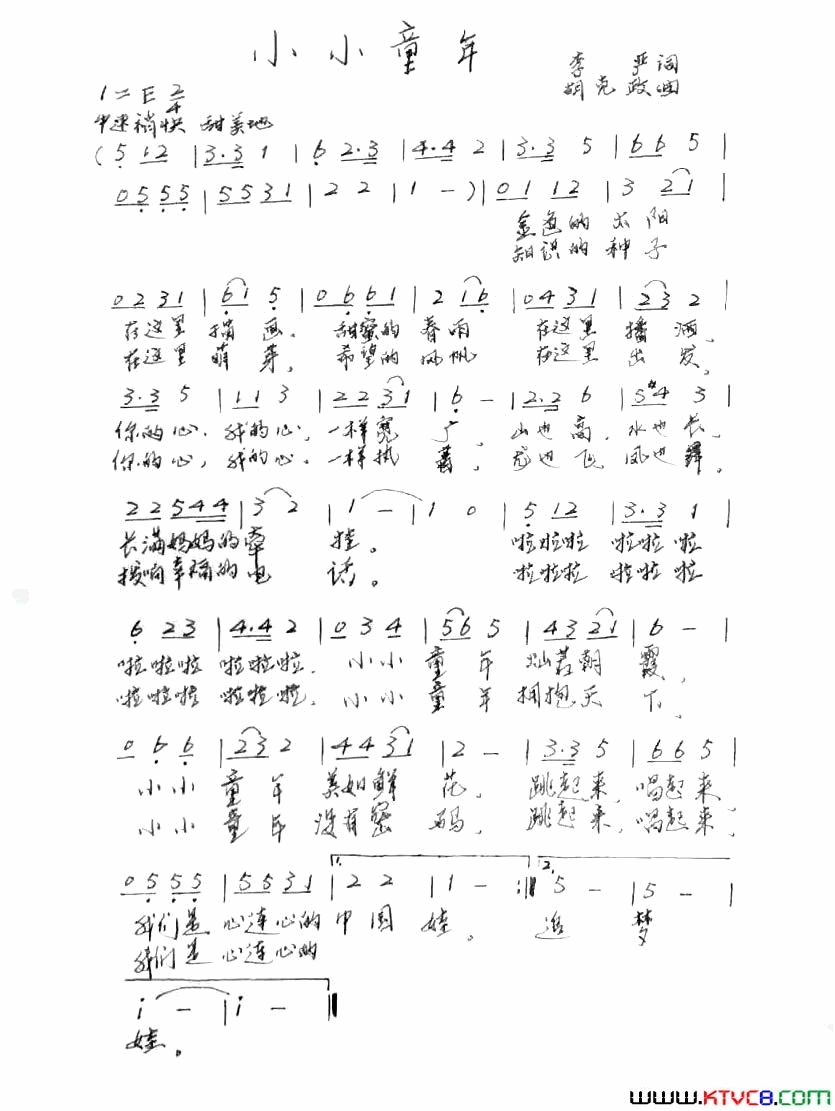 小小童年
李严词
胡克政曲
1=E 2/4
中速稍快 甜美地
( 5 1 2 | 3·3 1 | 6 2·3 | 4·4 2 | 3·3 5 | 6 6 5 |
0 5 5 5 | 5 5 3 1 | 2 2 | 1 - ) | 0 1 1 2 | 3 2 1 |
金色的太阳
知识的种子
0 2 3 1 | 6 1 5 | 0 6 6 1 | 2 1 6 | 0 4 3 1 | 2 3 2 |
在这里描画。甜蜜的春雨在这里播洒。
在这里萌芽。希望的风帆在这里出发。
3·3 5 | 1 1 3 | 2 2 3 1 | 6 - | 2·2 6 | 5 #4 3 |
你的心,我的心,一样宽广。山也高,水也长,
你的心,我的心,一样执著。龙也飞,凤也舞,
2 2 5 4 4 | 3 2 | 1 - | 1 0 | 5 1 2 | 3·3 1 |
长满妈妈的牵挂。啦啦啦 啦啦啦
拨响幸福的电话。啦啦啦 啦啦啦
6 2 3 | 4·4 2 | 0 3 4 | 5 6 5 | 4 3 2 1 | 6 - |
啦啦啦 啦啦啦,小小童年灿若朝霞,
啦啦啦 啦啦啦,小小童年拥抱天下。
0 6 6 | 2 3 2 | 4 4 3 1 | 2 - | 3·3 5 | 6 6 5 |
小小童年美如鲜花。跳起来,唱起来,
小小童年没有密码。跳起来,唱起来,
1. 2.
0 5 5 5 | 5 5 3 1 | 2 2 | 1 - :‖ 5 - | 5 - |
我们是心连心的中国娃。追梦
我们是心连心的
i - | i - ‖
娃。
www.KTVC8.com